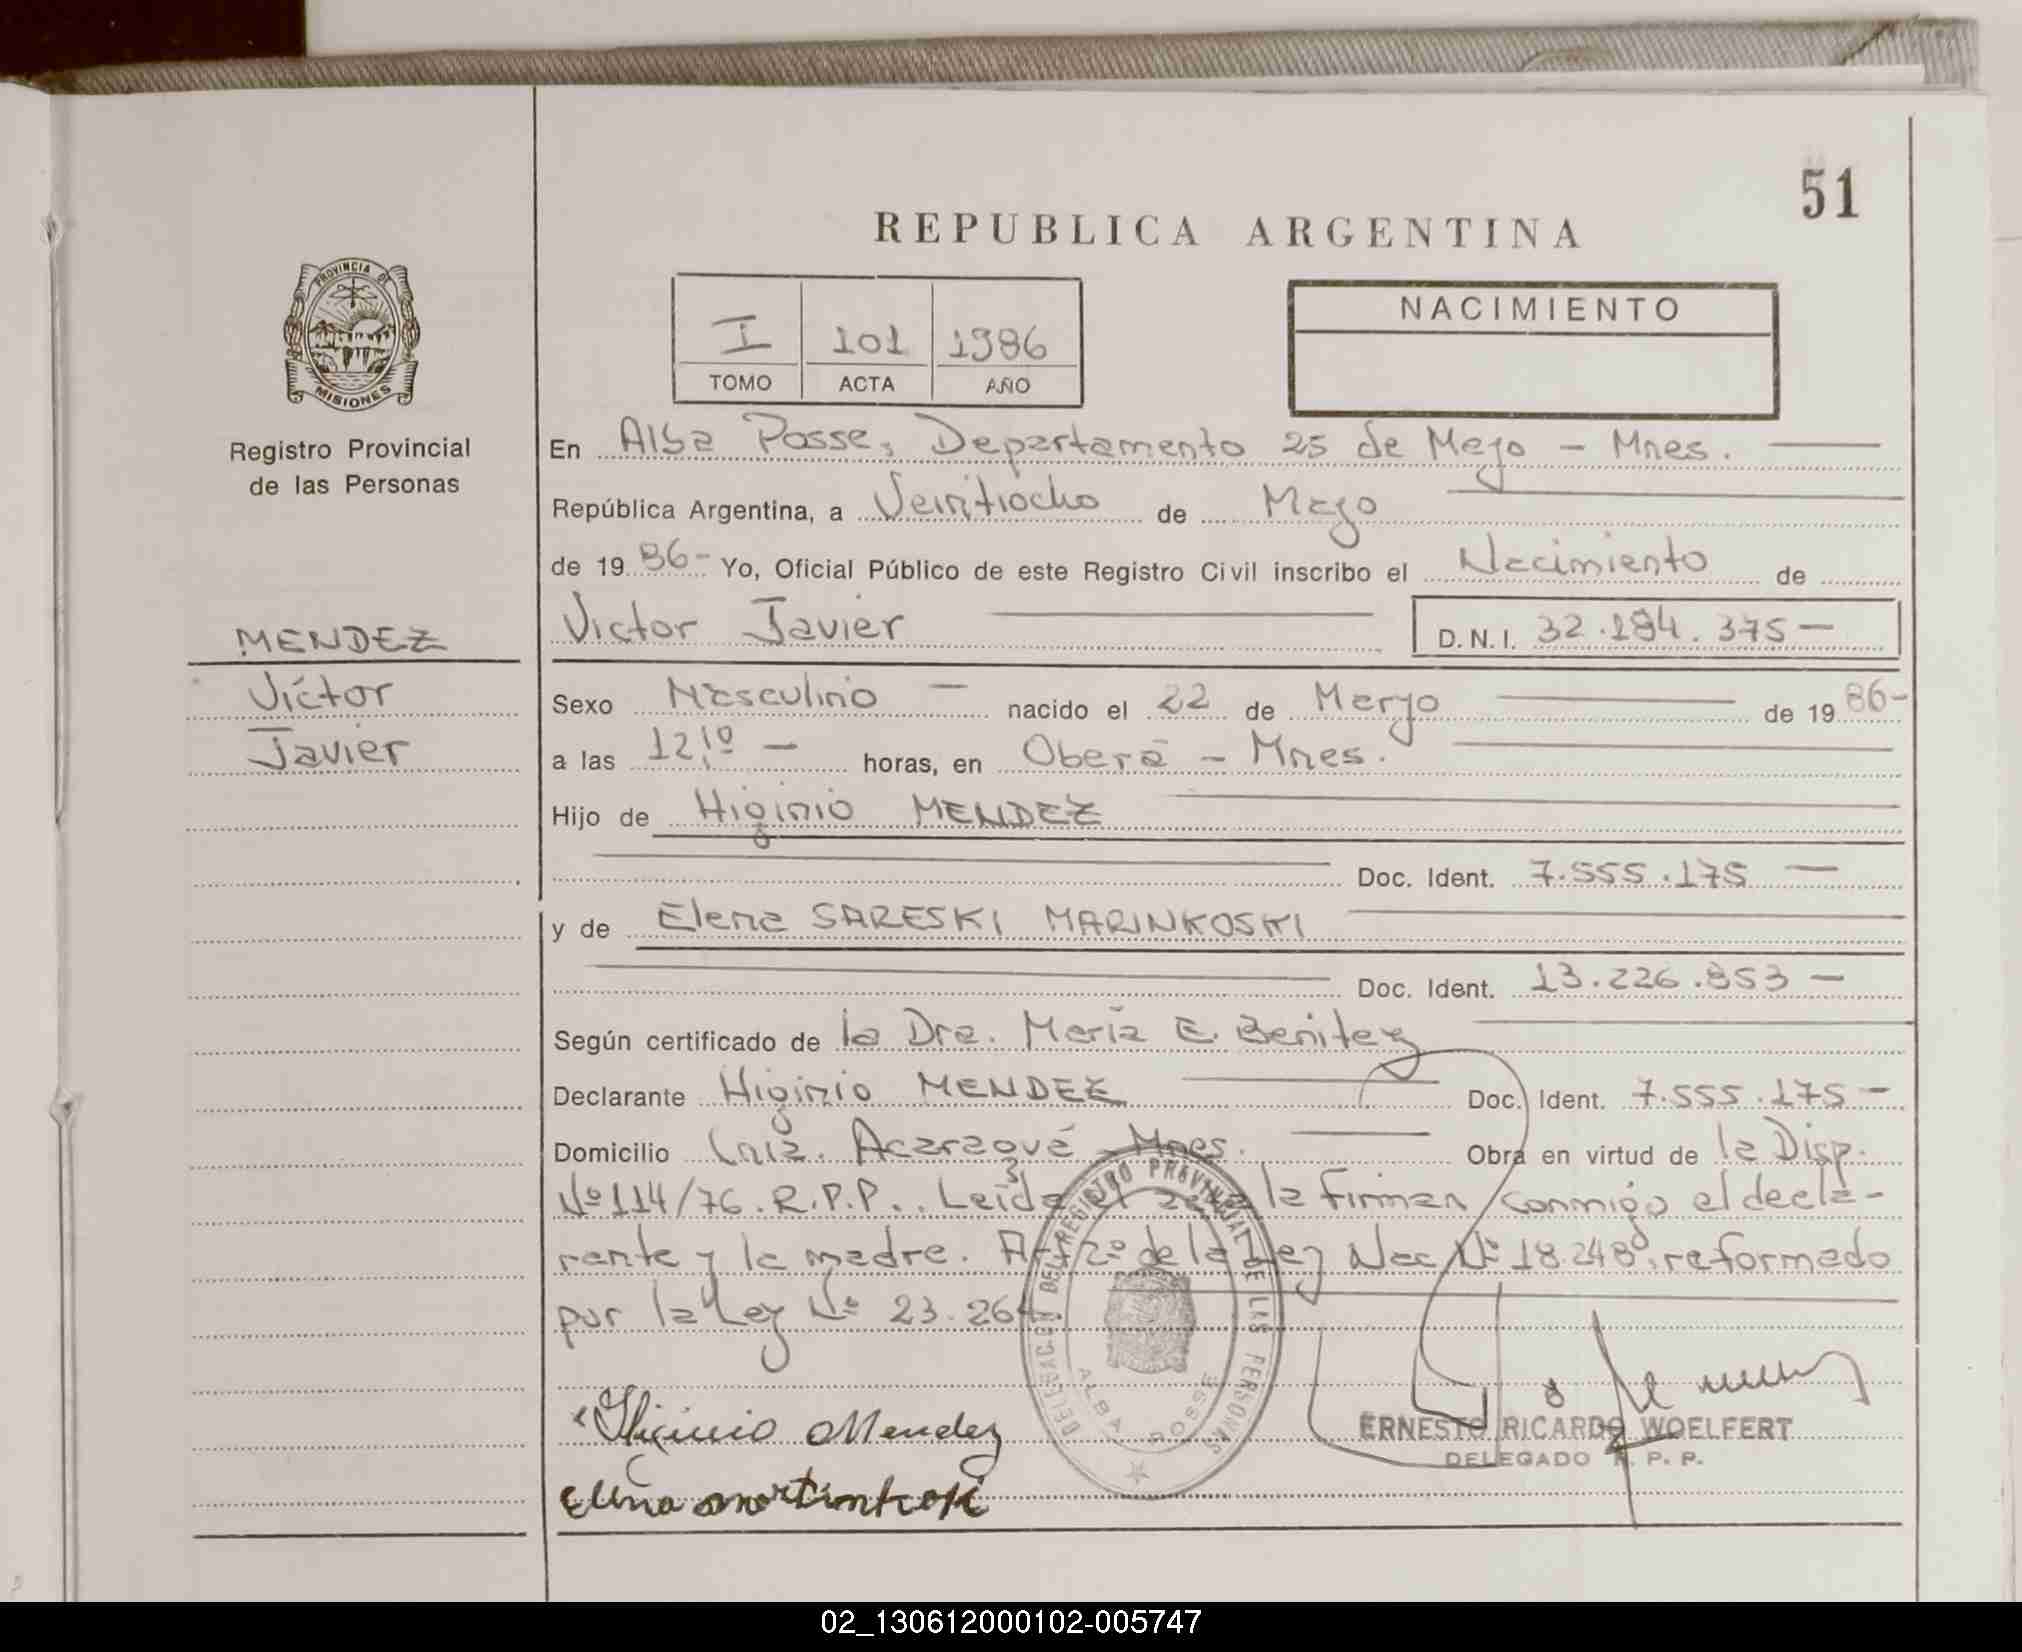 51
REPUBLICA ARGENTINA
PROVINCIA DE
MISIONES
Registro Provincial
de las Personas
I 101 1986
TOMO ACTA AÑO
NACIMIENTO
En Alba Posse, Departamento 25 de Mayo - Mnes.
República Argentina, a Veintiocho de Mayo
de 19 86- Yo, Oficial Público de este Registro Civil inscribo el Nacimiento de
Victor Javier D.N.I. 32.184.375-
MENDEZ
Víctor
Javier
Sexo Masculino - nacido el 22 de Marzo de 19 86-
a las 12,10 - horas, en Oberá - Mnes.
Hijo de Higinio MENDEZ
Doc. Ident. 7.555.175 -
y de Elena SARESKI MARINKOSKI
Doc. Ident. 13.226.853 -
Según certificado de la Dra. María E. Benitez
Declarante Higinio MENDEZ Doc. Ident. 7.555.175 -
Domicilio Cnia. Acaragué - Mnes. Obra en virtud de la Disp.
Nº 114/76. R.P.P.. Leída el acta la firman conmigo el decla-
rante y la madre. Art 2º de la Ley Nac Nº 18.248, reformado
por la Ley Nº 23.264.
DELEGACION DEL REGISTRO PROVINCIAL DE LAS PERSONAS
ALBA POSSE
Higinio Mendez
ERNESTO RICARDO WOELFERT
DELEGADO R. P. P.
02_130612000102-005747